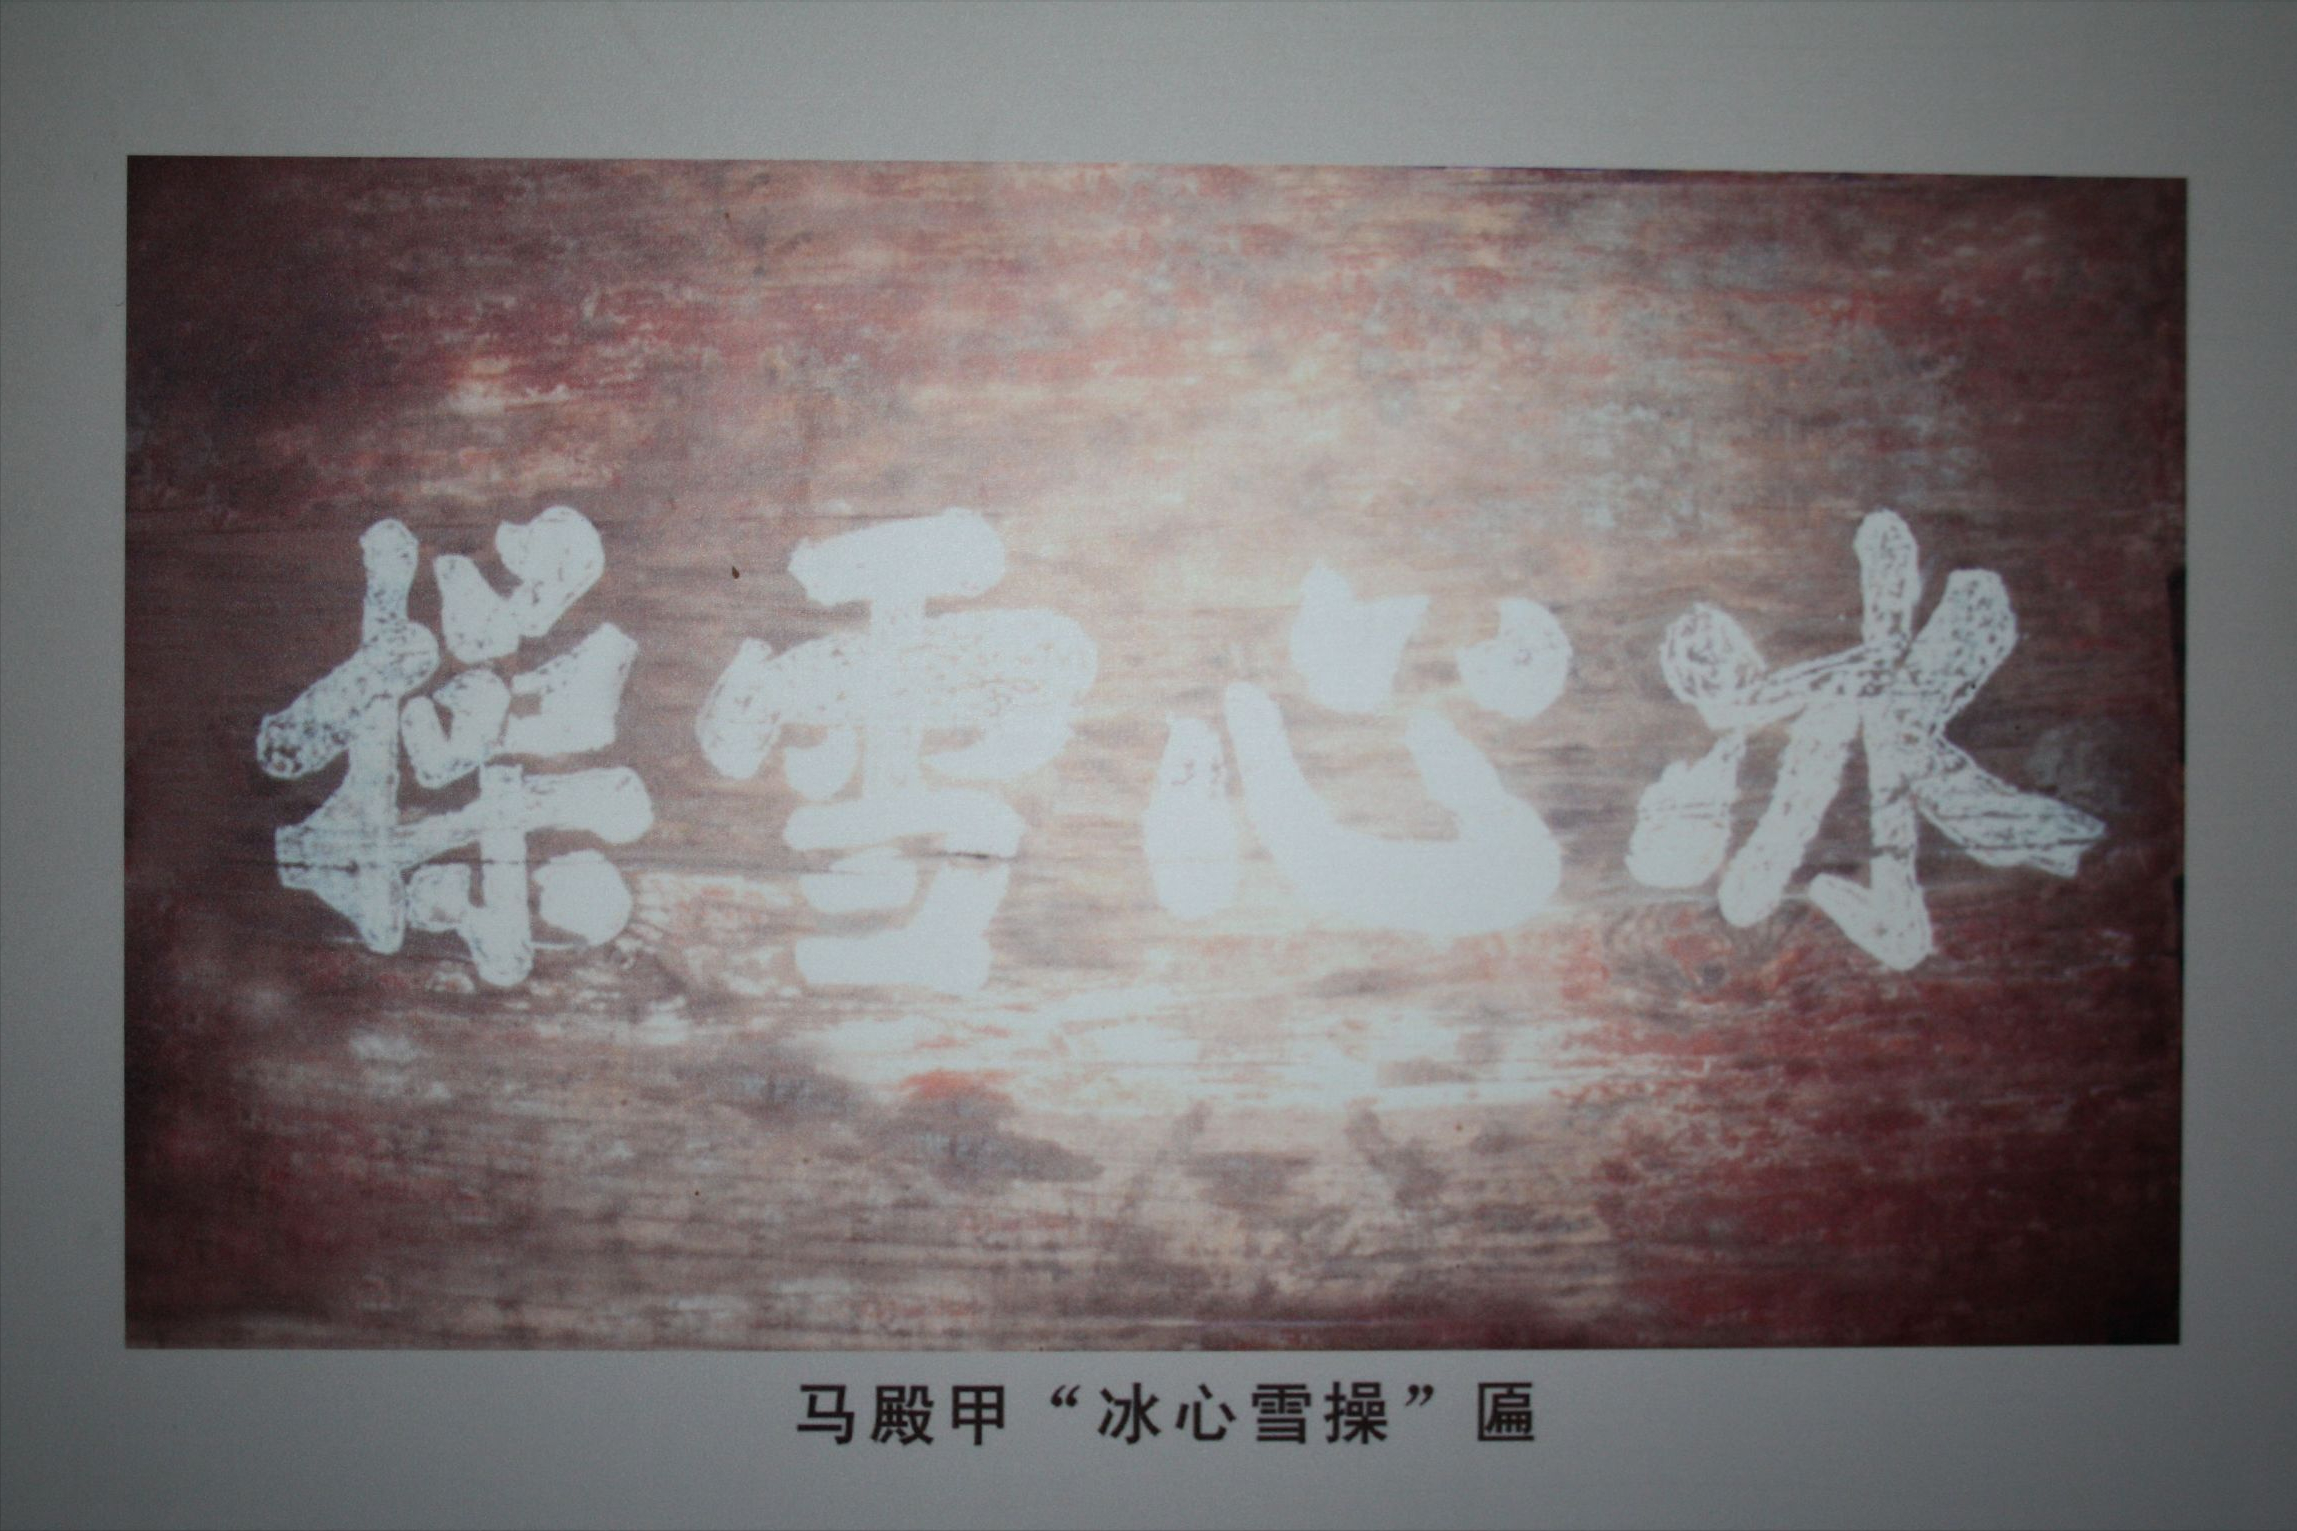 冰心雪操
马殿甲“冰心雪操”匾